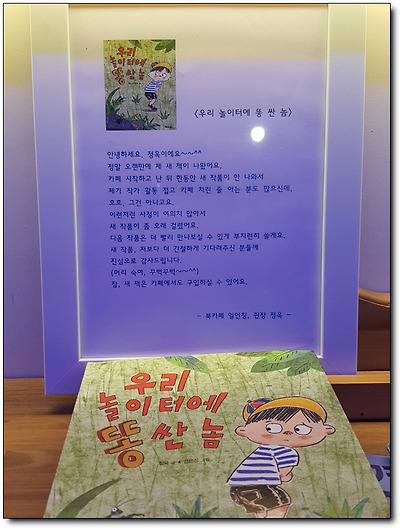 우리
놀이터에
똥 싼 놈
〈우리 놀이터에 똥 싼 놈〉
안녕하세요, 정옥이에요~~^^
정말 오랜만에 제 새 책이 나왔어요.
카페 시작하고 난 뒤 한동안 새 작품이 안 나와서
제가 작가 활동 접고 카페 차린 줄 아는 분도 많으신데,
흐흐, 그건 아니고요.
이런저런 사정이 여의치 않아서
새 작품이 좀 오래 걸렸어요.
다음 작품은 더 빨리 만나보실 수 있게 부지런히 쓸게요.
새 작품, 저보다 더 간절하게 기다려주신 분들께
진심으로 감사드립니다.
(머리 숙여, 꾸벅꾸벅~~^^)
참, 새 책은 카페에서도 구입하실 수 있어요.
- 북카페 일인칭, 쥔장 정옥 -
우리
놀이터에
똥 싼 놈
정옥 글
그림